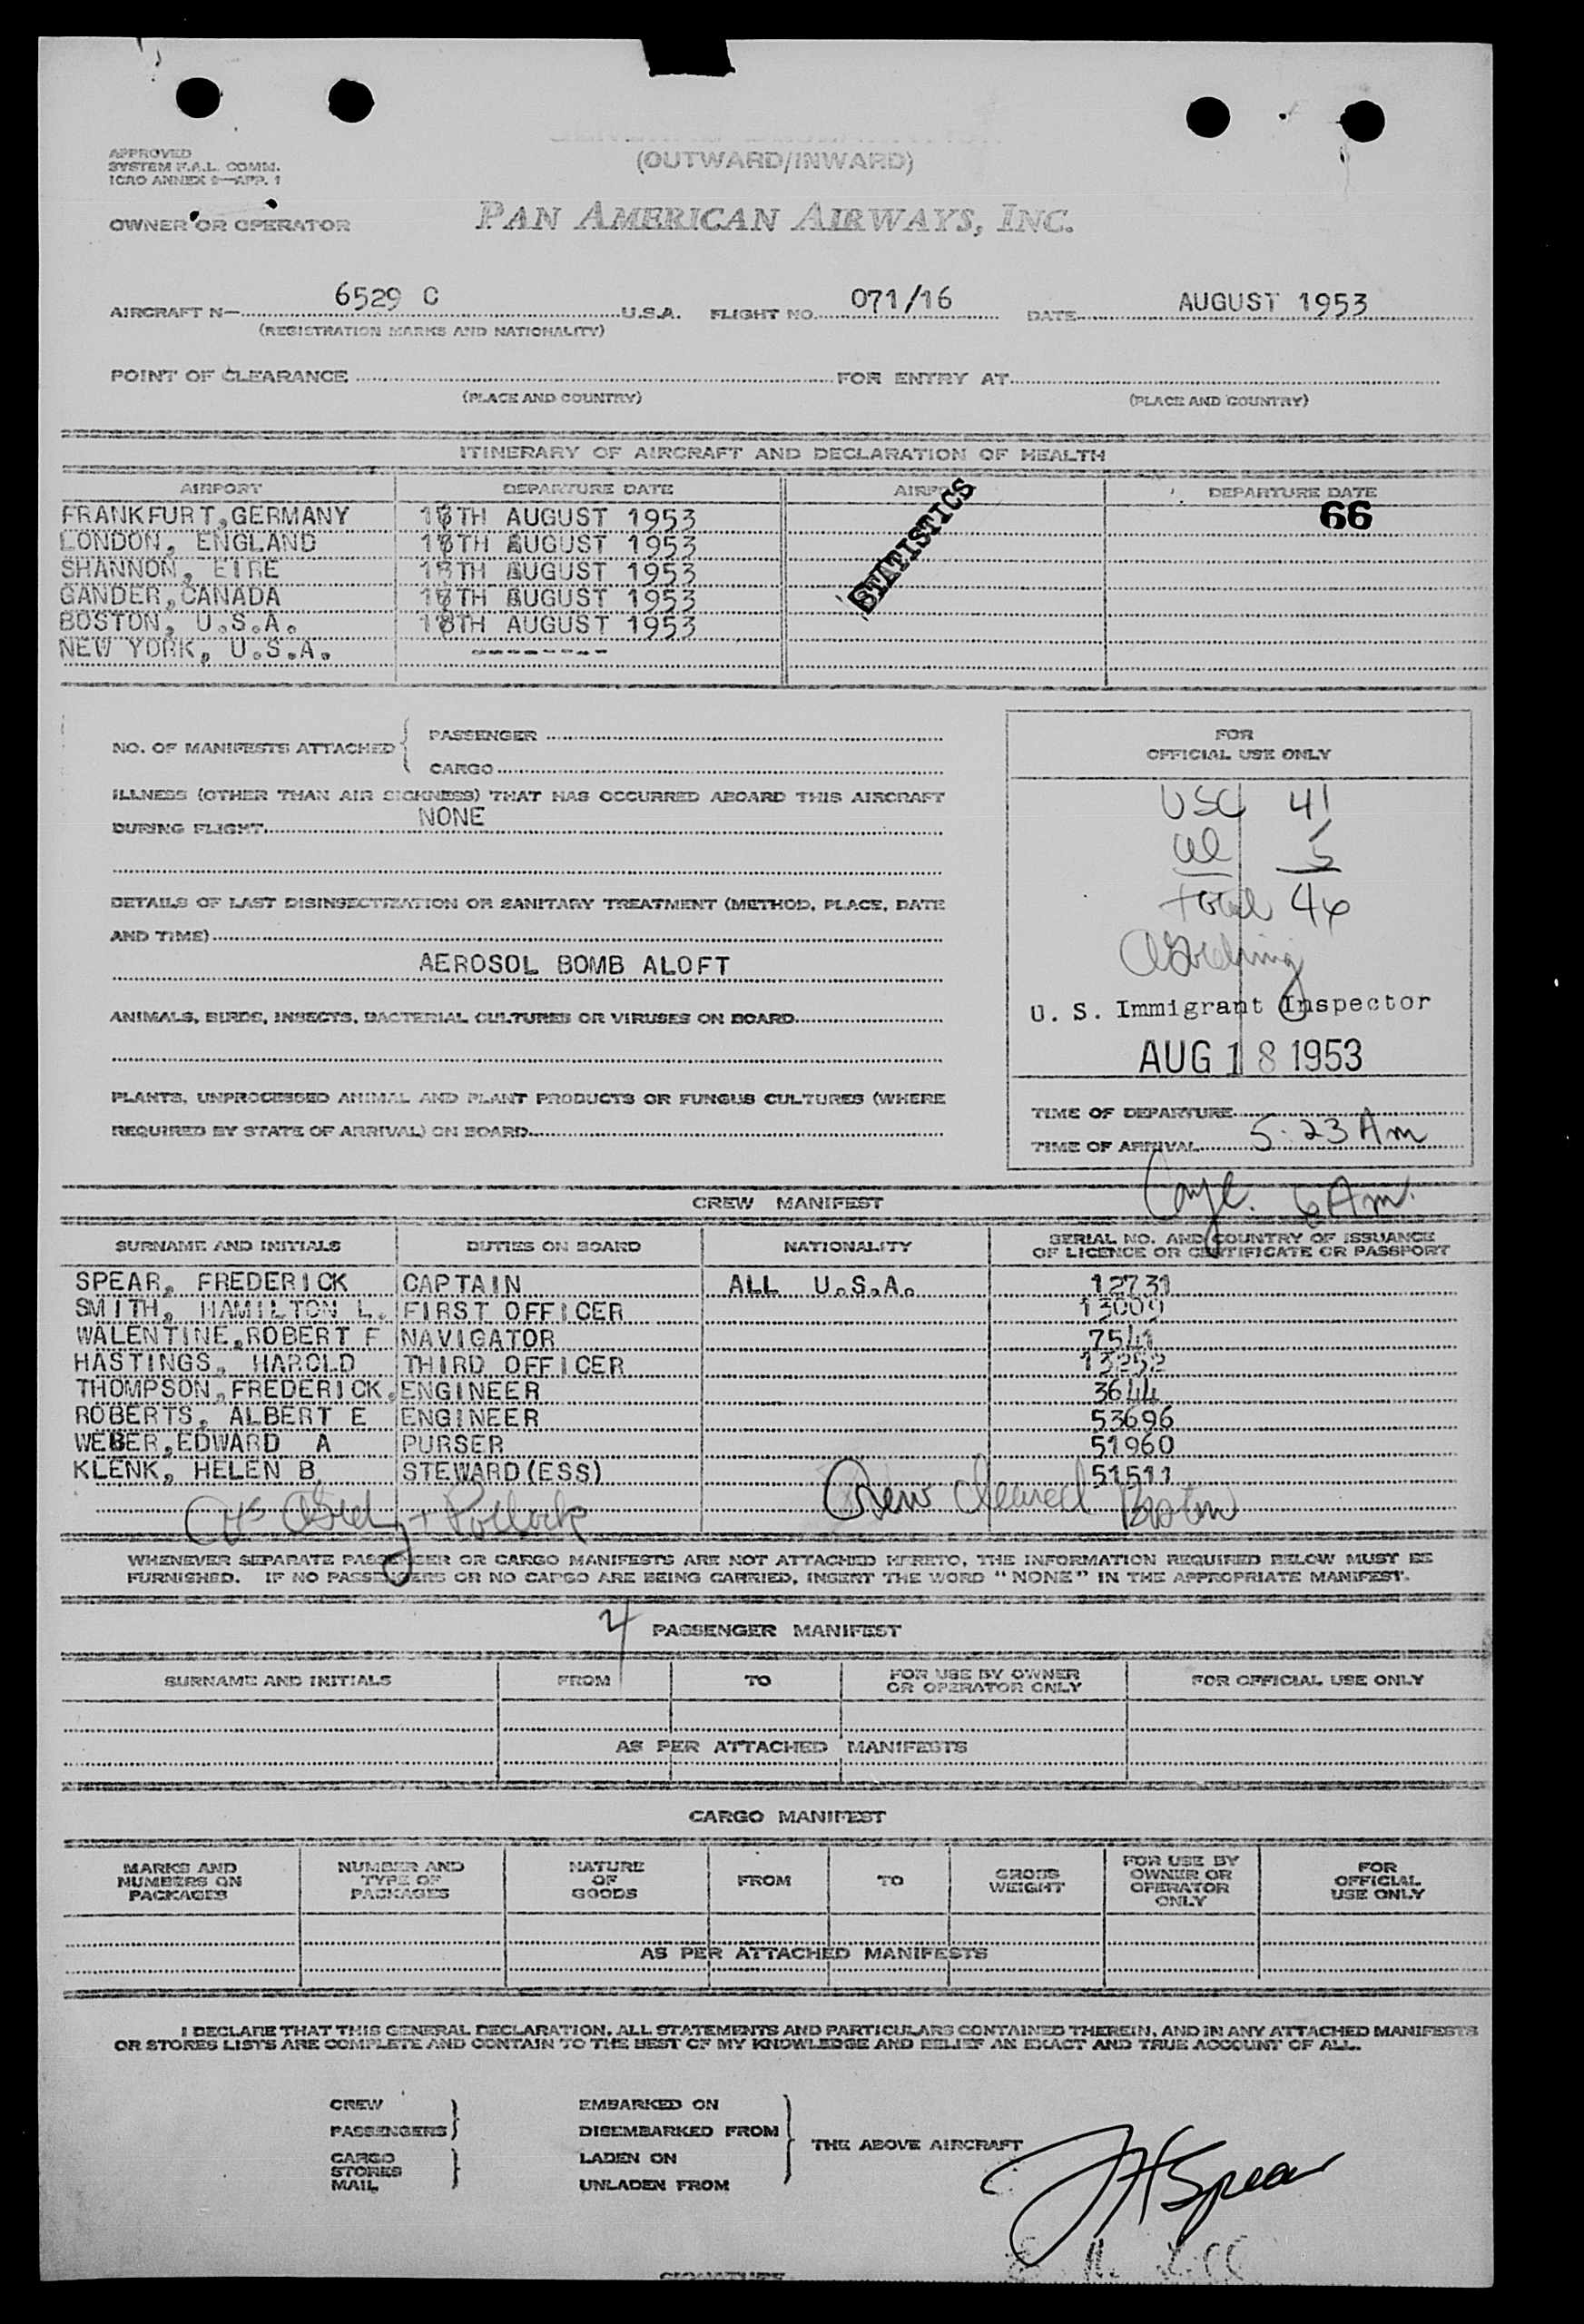 (OUTWARD/INWARD)
APPROVED
SYSTEM F.A.L. COMM.
ICAO ANNEX 9—APP. 1
OWNER OR OPERATOR
PAN AMERICAN AIRWAYS, INC.
AIRCRAFT N— 6529 C U.S.A. FLIGHT NO. 071/16 DATE AUGUST 1953
(REGISTRATION MARKS AND NATIONALITY)
POINT OF CLEARANCE FOR ENTRY AT
(PLACE AND COUNTRY) (PLACE AND COUNTRY)
ITINERARY OF AIRCRAFT AND DECLARATION OF HEALTH
AIRPORT DEPARTURE DATE AIRPORT DEPARTURE DATE
66
STATISTICS
FRANKFURT,GERMANY TH AUGUST 1953
LONDON, ENGLAND TH AUGUST 1953
SHANNON, EIRE TH AUGUST 1953
GANDER,CANADA TH AUGUST 1953
BOSTON, U.S.A. 18TH AUGUST 1953
NEW YORK, U.S.A. --------
NO. OF MANIFESTS ATTACHED
PASSENGER
CARGO
ILLNESS (OTHER THAN AIR SICKNESS) THAT HAS OCCURRED ABOARD THIS AIRCRAFT
DURING FLIGHT NONE
DETAILS OF LAST DISINSECTIZATION OR SANITARY TREATMENT (METHOD, PLACE, DATE
AND TIME)
AEROSOL BOMB ALOFT
ANIMALS, BIRDS, INSECTS, BACTERIAL CULTURES OR VIRUSES ON BOARD
PLANTS, UNPROCESSED ANIMAL AND PLANT PRODUCTS OR FUNGUS CULTURES (WHERE
REQUIRED BY STATE OF ARRIVAL) ON BOARD
FOR
OFFICIAL USE ONLY
USC 41
al 5
total 46
U. S. Immigrant Inspector
AUG 18 1953
TIME OF DEPARTURE
TIME OF ARRIVAL 5:23 Am
6 Am.
CREW MANIFEST
SURNAME AND INITIALS DUTIES ON BOARD NATIONALITY SERIAL NO. AND COUNTRY OF ISSUANCE
OF LICENCE OR CERTIFICATE OR PASSPORT
SPEAR, FREDERICK CAPTAIN ALL U.S.A. 12731
SMITH, HAMILTON L. FIRST OFFICER 13009
WALENTINE,ROBERT F NAVIGATOR 7541
HASTINGS, HAROLD THIRD OFFICER 13252
THOMPSON,FREDERICK. ENGINEER 3644
ROBERTS, ALBERT E ENGINEER 53696
WEBER,EDWARD A PURSER 51960
KLENK, HELEN B. STEWARD(ESS) 51511
+ Pollock Crew Cleared Boston
WHENEVER SEPARATE PASSENGER OR CARGO MANIFESTS ARE NOT ATTACHED HERETO, THE INFORMATION REQUIRED BELOW MUST BE
FURNISHED. IF NO PASSENGERS OR NO CARGO ARE BEING CARRIED, INSERT THE WORD "NONE" IN THE APPROPRIATE MANIFEST.
PASSENGER MANIFEST
SURNAME AND INITIALS FROM TO FOR USE BY OWNER
OR OPERATOR ONLY FOR OFFICIAL USE ONLY
AS PER ATTACHED MANIFESTS
CARGO MANIFEST
MARKS AND
NUMBERS ON
PACKAGES
NUMBER AND
TYPE OF
PACKAGES
NATURE
OF
GOODS
FROM
TO
GROSS
WEIGHT
FOR USE BY
OWNER OR
OPERATOR
ONLY
FOR
OFFICIAL
USE ONLY
AS PER ATTACHED MANIFESTS
I DECLARE THAT THIS GENERAL DECLARATION, ALL STATEMENTS AND PARTICULARS CONTAINED THEREIN, AND IN ANY ATTACHED MANIFESTS
OR STORES LISTS ARE COMPLETE AND CONTAIN TO THE BEST OF MY KNOWLEDGE AND BELIEF AN EXACT AND TRUE ACCOUNT OF ALL.
CREW EMBARKED ON
PASSENGERS DISEMBARKED FROM
THE ABOVE AIRCRAFT
CARGO LADEN ON
STORES
MAIL UNLADEN FROM
Spear
SIGNATURE